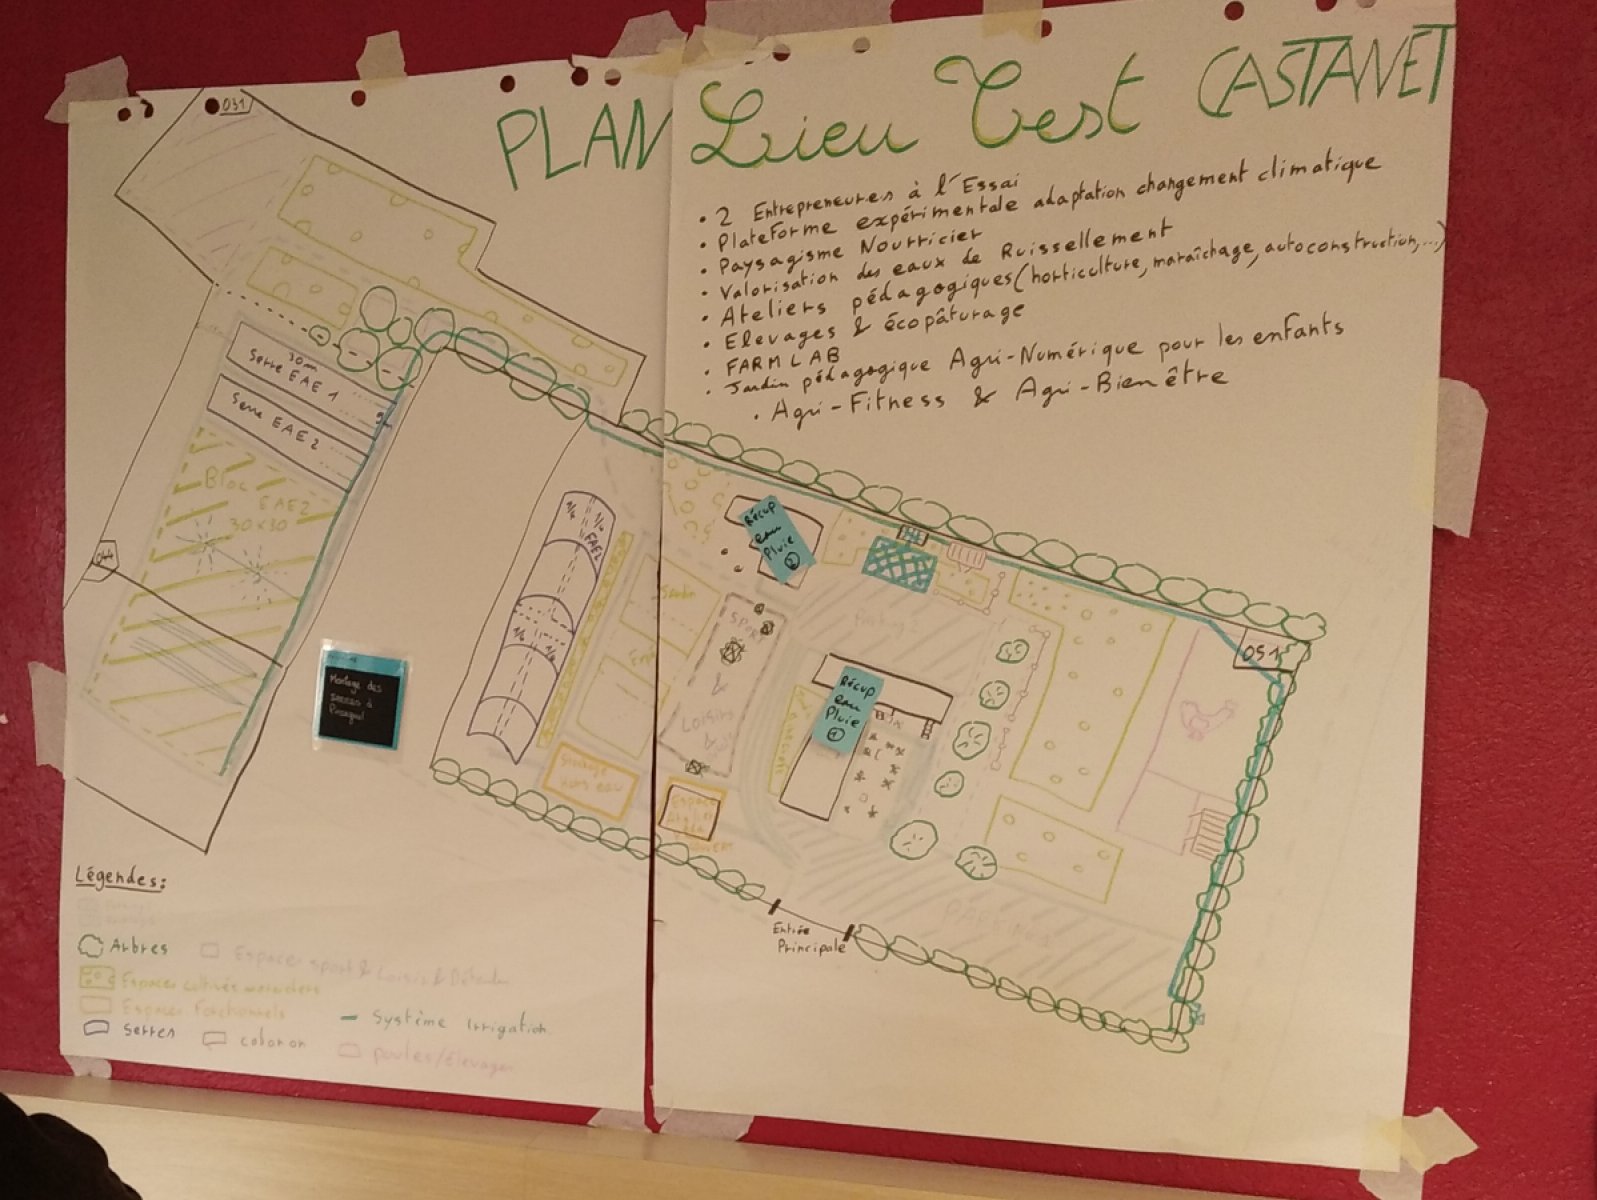 PLAN Lieu Test CASTANET
• 2 Entrepreneures à l'Essai
• Plateforme expérimentale adaptation changement climatique
• Paysagisme Nourricier
• Valorisation des eaux de Ruissellement
• Ateliers pédagogiques (horticulture, maraîchage, autoconstruction,...)
• Elevages & écopâturage
• FARM LAB
• Jardin pédagogique Agri-Numérique pour les enfants
• Agri-Fitness & Agri-Bien être
031
30m
Serre EAE 1
Serre EAE 2
Bloc
EAE2
30x30
044
Montage des
serres à
1/4 1/4
1/4 1/4
Récup
eau
Pluie
2
SPORT
&
Loisirs
Parking
Récup
eau
Pluie
1
051
Stockage
Hors eau
Espace
Entrée
Principale
PARKING
Légendes:
Arbres
Espaces sport & Loisirs & Détente
Espaces cultivés maraichers
Espaces Fonctionnels
Système Irrigation
Serres
poules/Elevages